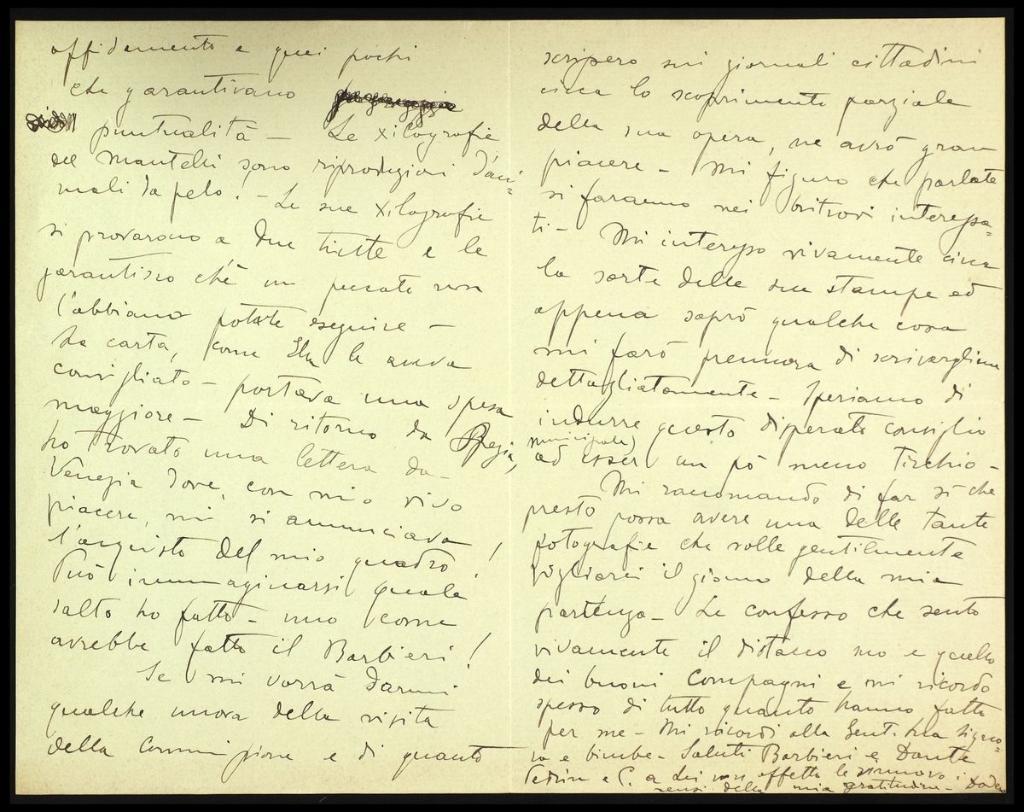 affidamento e quei pochi
che garantivano
puntualità - Le xilografie
del Mantelli sono riproduzioni d'ani-
mali da pelo! - Le sue xilografie
si provarono a due tinte e le
garantisco ch'è un peccato non
l'abbiano potute eseguire -
La carta, come Ella la aveva
consigliato - portava una spesa
maggiore - Di ritorno da Spezia,
ho trovato una lettera da
Venezia dove, con mio vivo
piacere, mi si annunciava
l'acquisto del mio quadro!
Può immaginarsi quale
salto ho fatto - uno come
avrebbe fatto il Barbieri!
Se mi vorrà darmi
qualche nuova della visita
della Commissione e di quanto
scrissero sui giornali cittadini
circa lo scoprimento parziale
della sua opera, ne avrò gran
piacere - Mi figuro che parlate
si faranno nei ritrovi interessa-
ti - Mi interesso vivamente circa
la sorte delle sue stampe ed
appena saprò qualche cosa
mi farò premura di scrivergliene
dettagliatamente - Speriamo di
indurre questo disperato consiglio
(municipale)
ad esser un pò meno Tirchio -
Mi racomando di far sì che
presto possa avere una delle tante
fotografie che volle gentilmente
pigliarci il giorno della mia
partenza - Le confesso che sento
vivamente il distacco suo e quello
dei buoni compagni e mi ricordo
spesso di tutto quanto hanno fatto
per me - Mi ricordi alla Gent. Sua Signo-
ra e bimbe - Saluti Barbieri e Dante
e C. a Lei con affetto le rinnovo i
sensi della mia gratitudine -